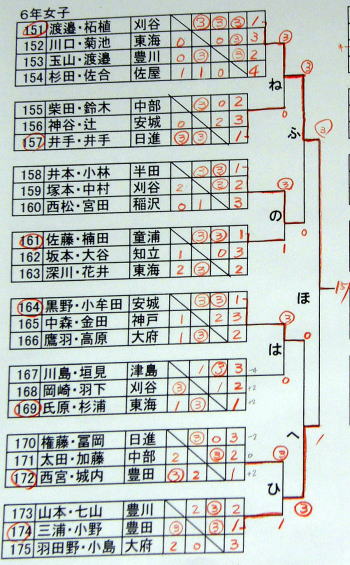 6年女子
151 渡邉・柘植 刈谷 ③ ③ ③ 1
152 川口・菊池 東海 0 0 ③ 3
153 玉山・渡邉 豊川 0 ③ 2
154 杉田・佐合 佐屋 1 1 0 4
ね
155 柴田・鈴木 中部 ③ 0 2
156 神谷・辻 安城 0 2 3
157 井手・井手 日進 ③ ③ 1
ふ
158 井本・小林 半田 ③ ③ 1
159 塚本・中村 刈谷 2 ③ 2
160 西松・宮田 稲沢 0 1 3
の
161 佐藤・楠田 童浦 ③ ③ 1
162 坂本・大谷 知立 1 0 3
163 深川・花井 東海 2 ③ 2
ほ
164 黒野・小牟田 安城 ③ ③ 1
165 中森・金田 神戸 1 2 3
166 鷹羽・高原 大府 1 ③ 2
は
167 川島・垣見 津島 1 ③ 3
168 岡崎・羽下 刈谷 ③ 1 2
169 氏原・杉浦 東海 1 ③ 1
へ
170 権藤・冨岡 日進 ③ 0 3
171 太田・加藤 中部 2 ③ 2
172 西宮・城内 豊田 ③ 2 1
ひ
173 山本・七山 豊川 2 ③ 2
174 三浦・小野 豊田 ③ ③ 1
175 羽田野・小島 大府 2 0 3